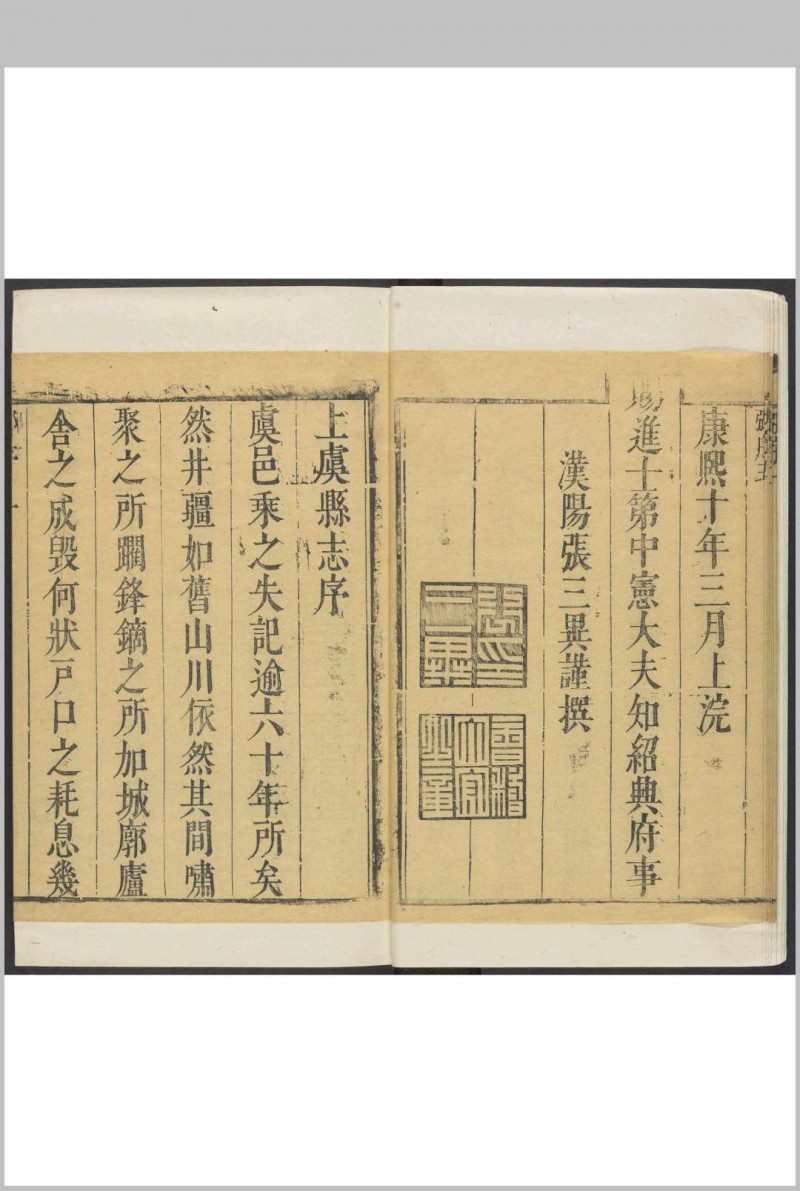 康熙十年三月上浣
賜進士第中憲大夫知紹興府事
漢陽張三異謹撰
上虞縣志序
虞邑乘之失記逾六十年所矣
然井疆如舊山川依然其間嘯
聚之所躙鋒鏑之所加城廓廬
舍之成毀何狀戸口之耗息幾